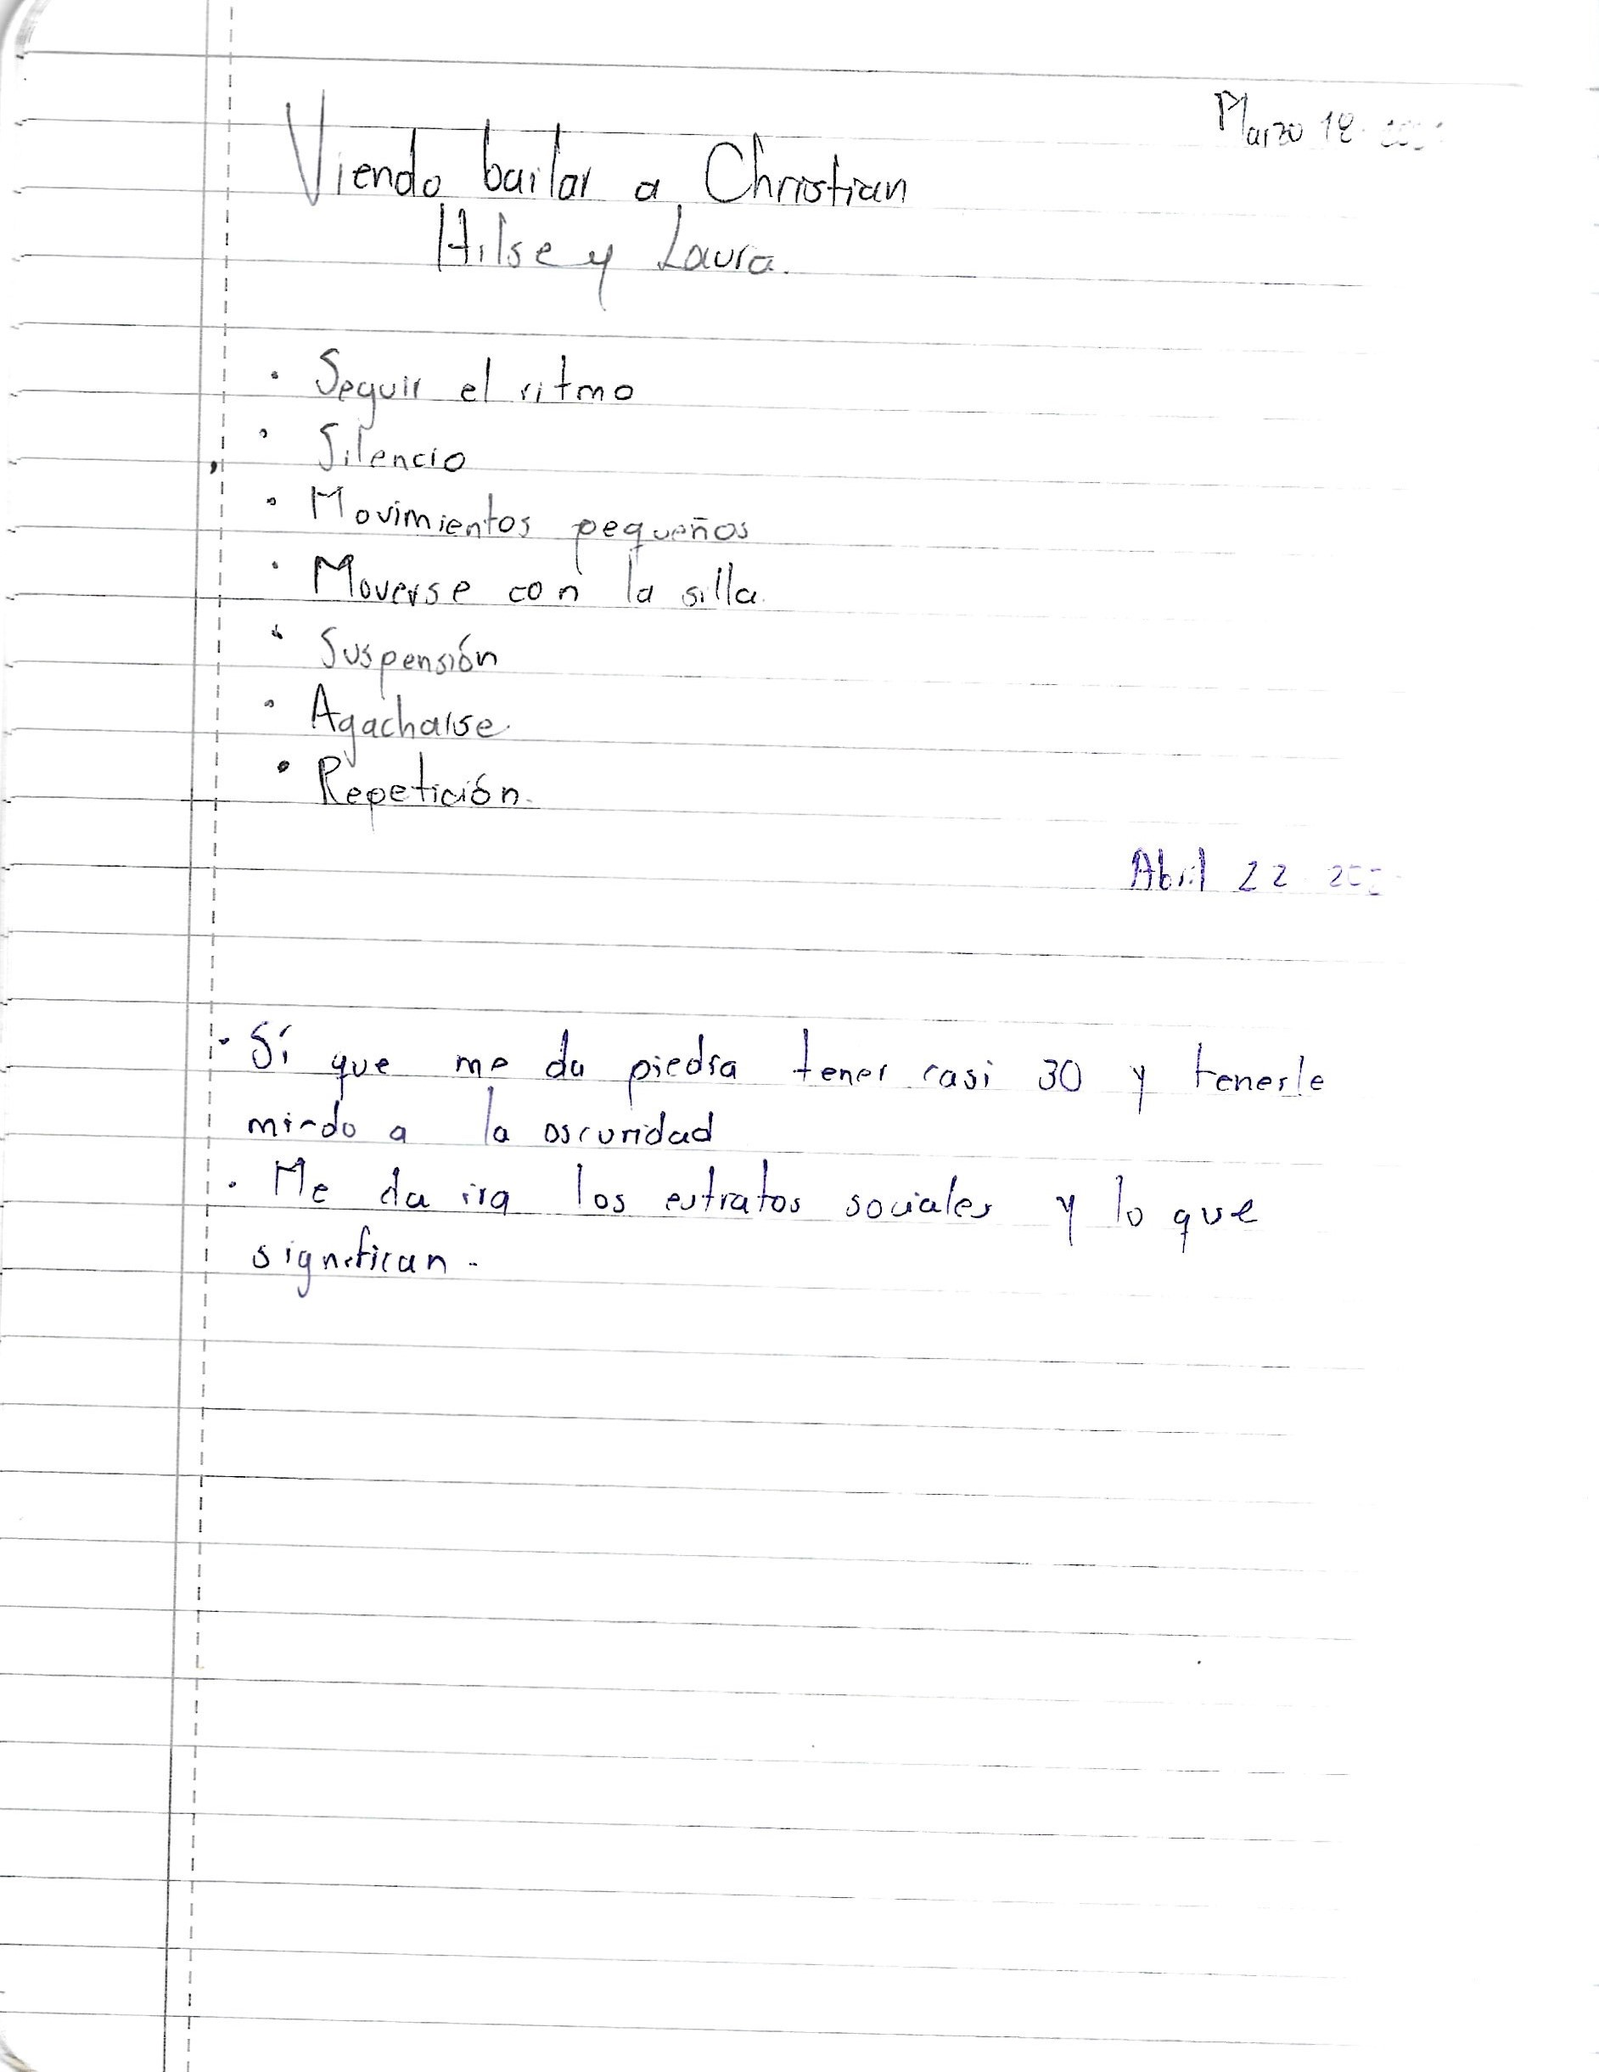 Marzo 18
Viendo bailar a Christian
Hilse y Laura.
• Seguir el ritmo
• Silencio
• Movimientos pequeños
• Moverse con la silla.
• Suspensión
• Agacharse.
• Repetición.
Abril 22
• Sí que me da piedra tener casi 30 y tenerle
miedo a la oscuridad
• Me da ira los estratos sociales y lo que
significan.